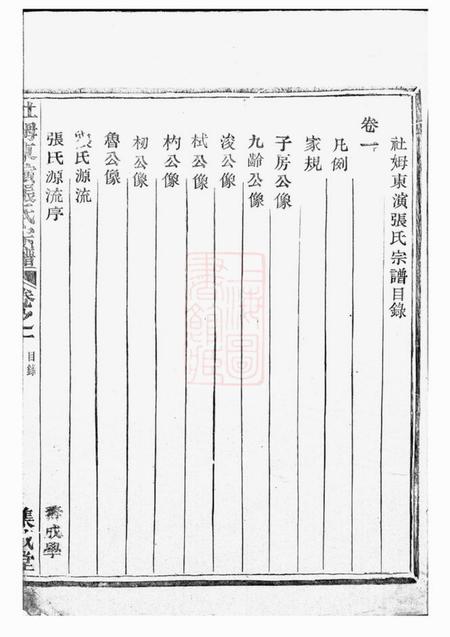 社姆東演張氏宗譜目錄
卷一
凡例
家規
子房公像
九齡公像
浚公像
栻公像
杓公像
初公像
魯公像
張氏源流
張氏源流序
齊成學
社姆東演張氏宗譜
卷之一
目錄
集成堂
上海圖書館藏